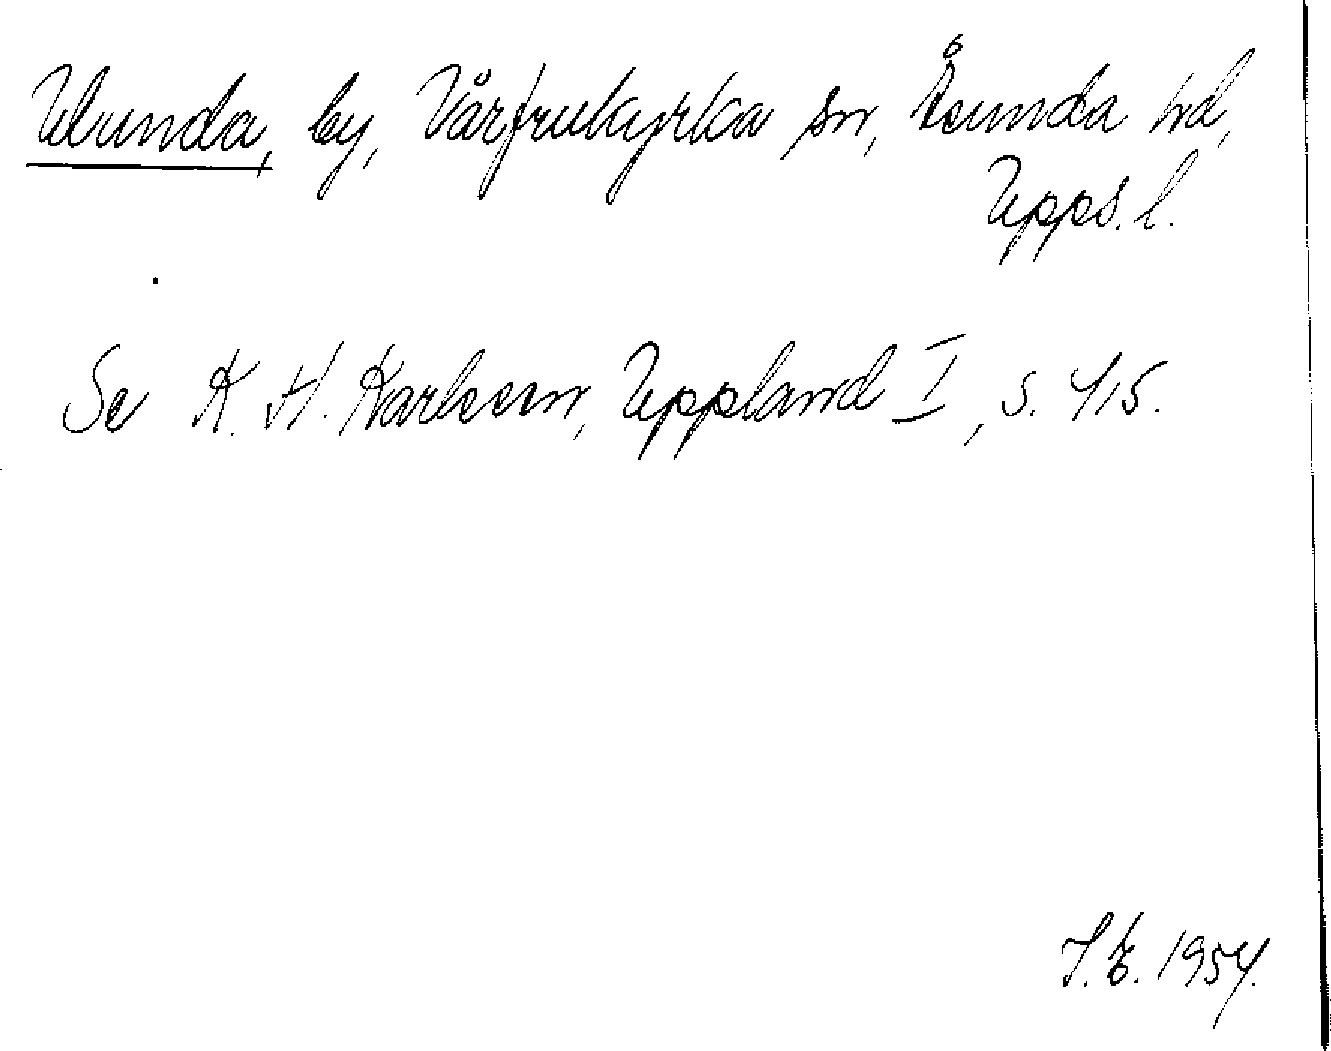 Ulunda, by, Vårfrukyrka sn, Åsunda hd,
Upps. l.
Se K. H. Karlsson, Uppland I, s. 415.
1954.